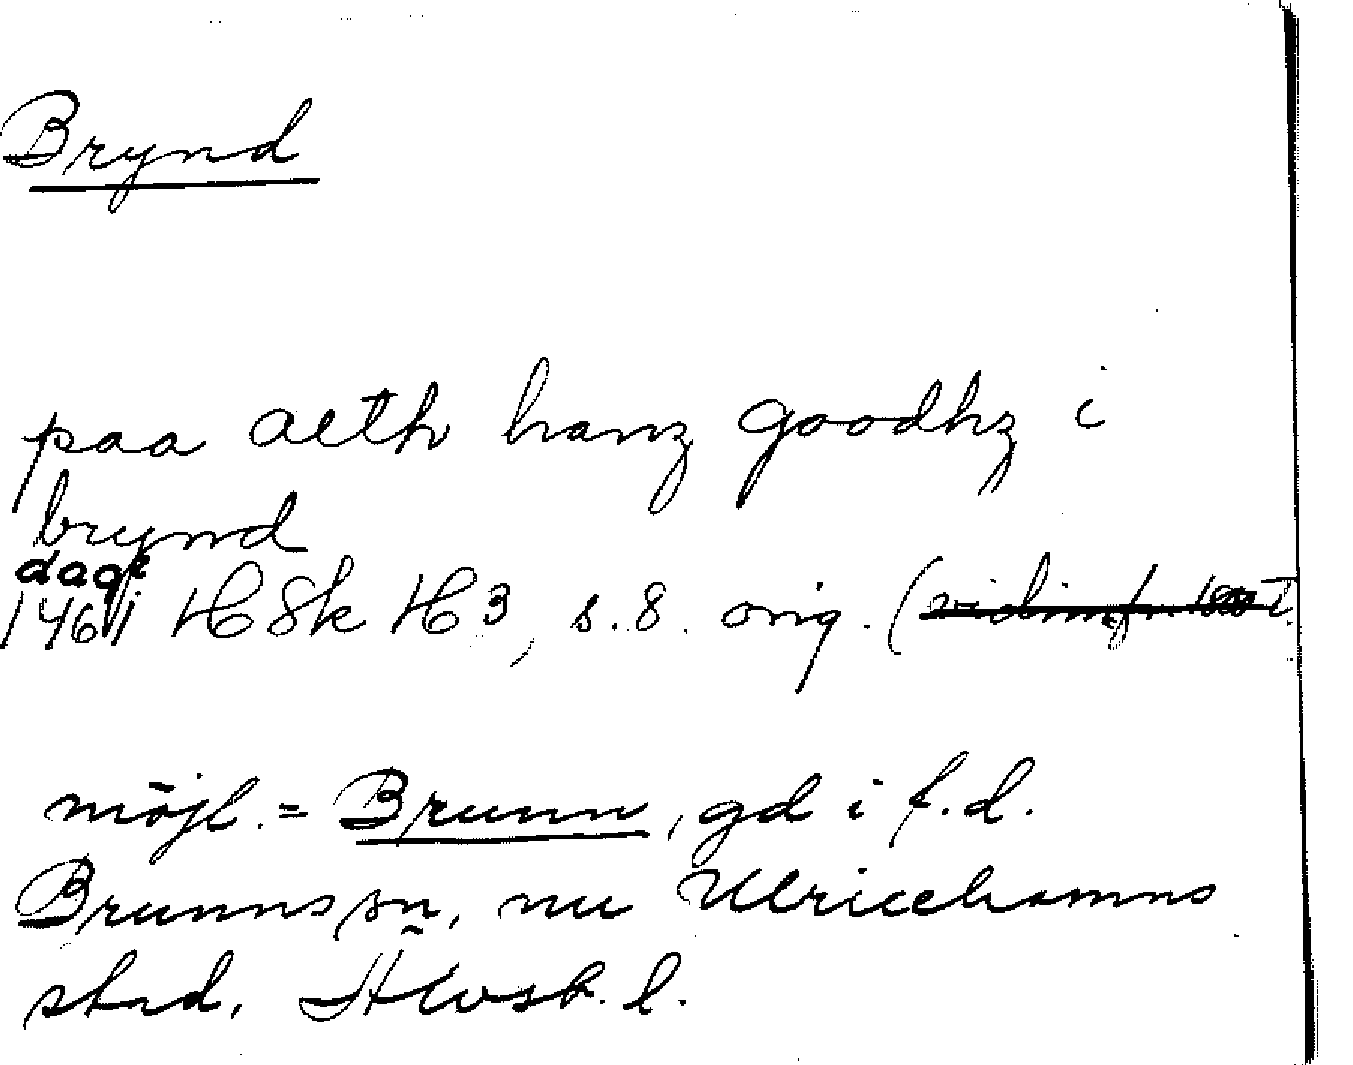 Brynd
paa alth hanz goodhz i
brynd
dagt
1461 HSk H3, s.8. orig. (
möjl. = Brunn, gd i f.d.
Brunns sn, nu Ulricehamns
stad, Älvsb. l.